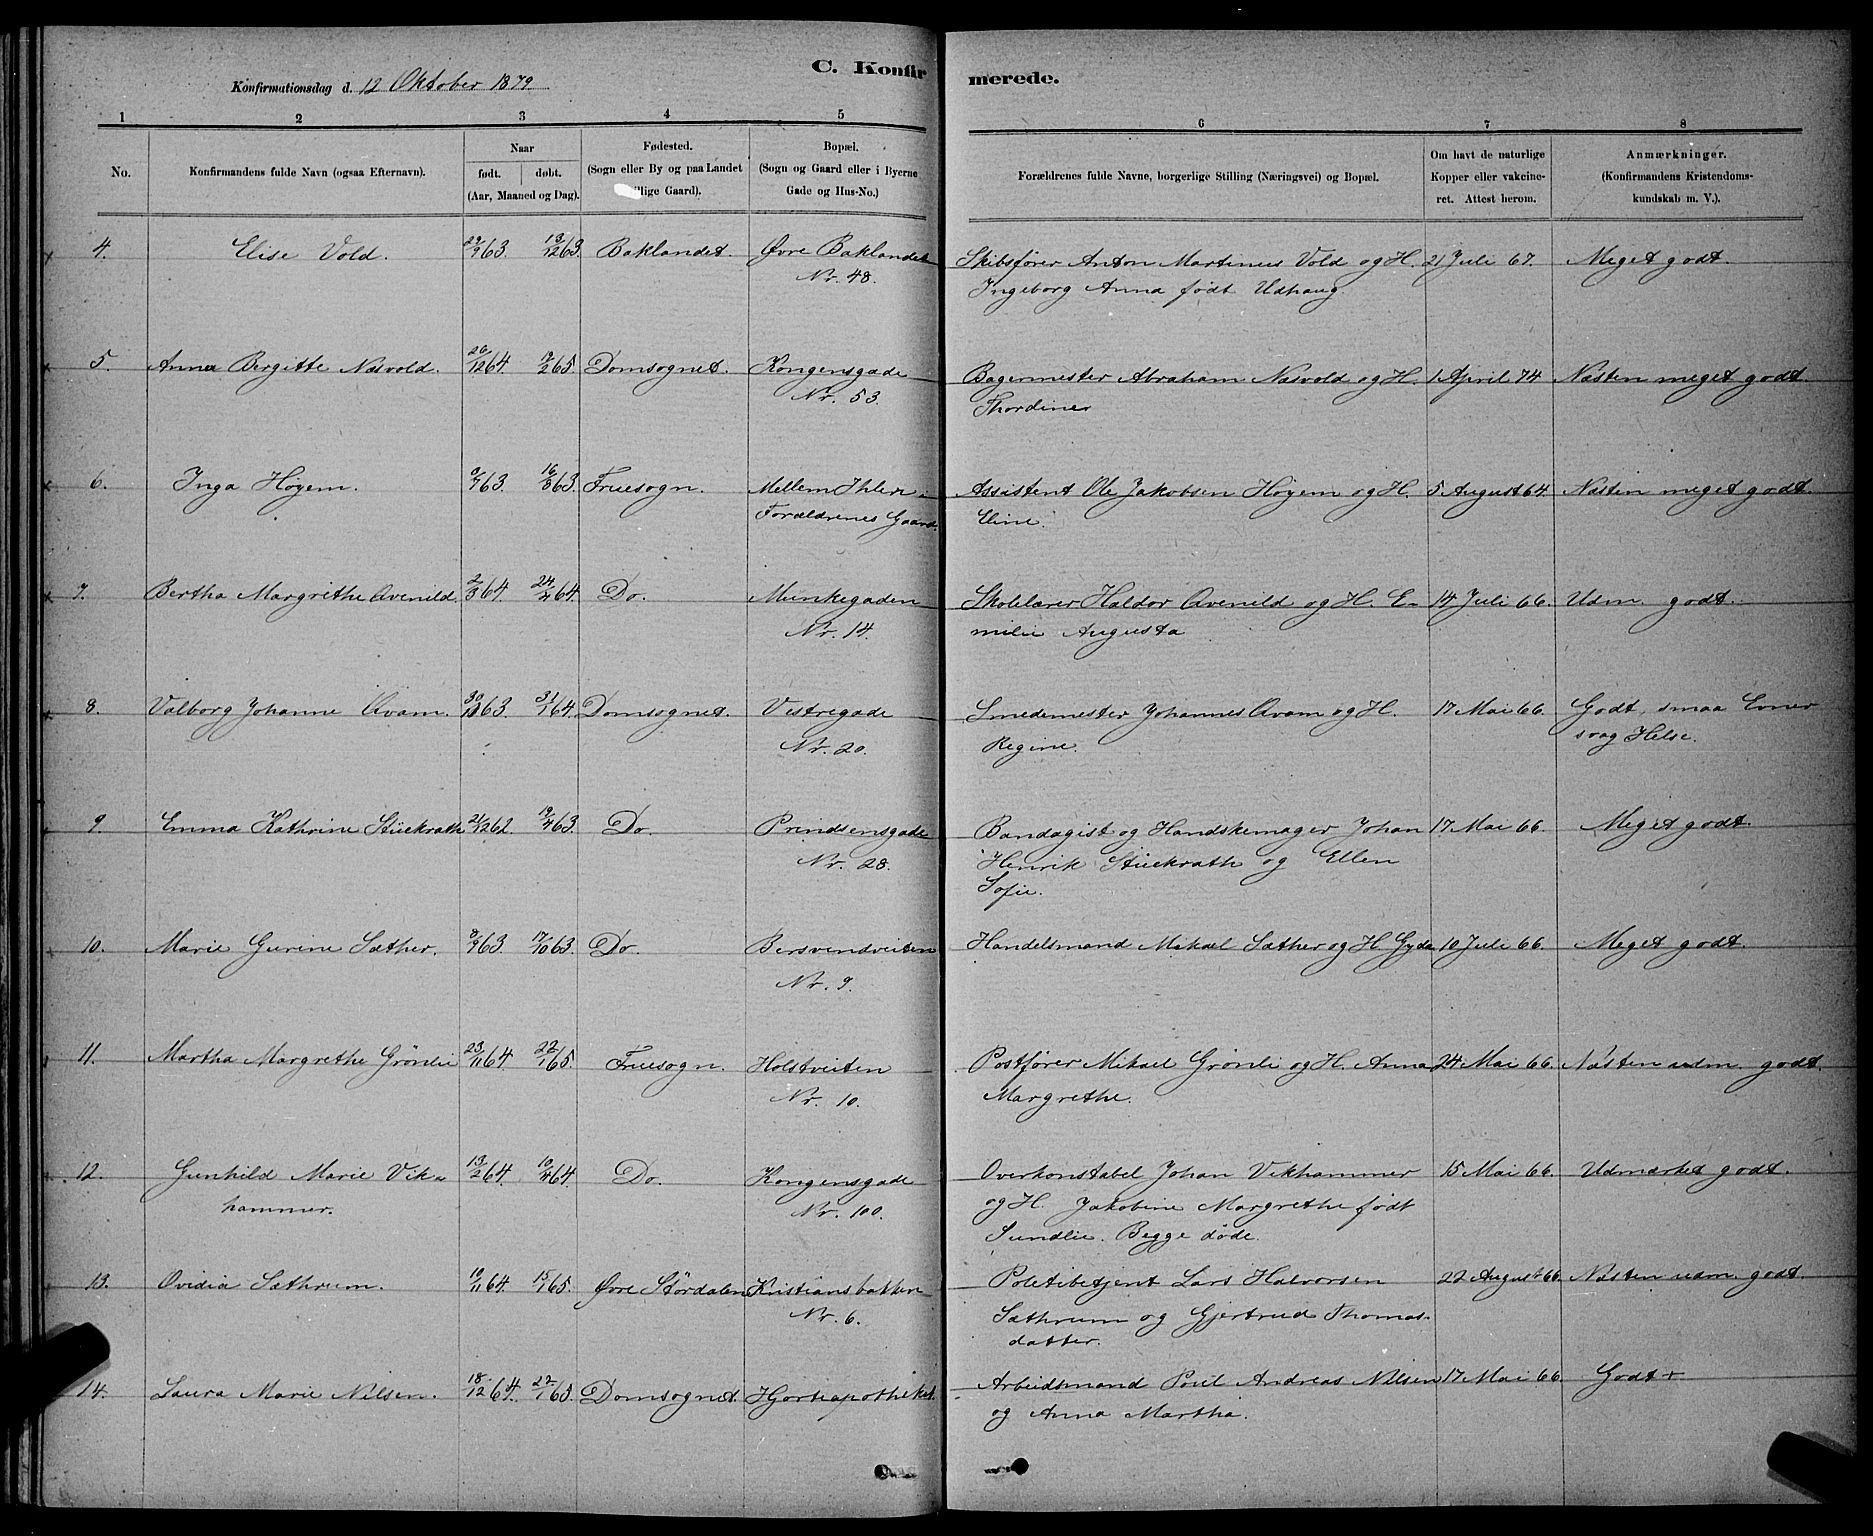 C. Konfir
merede.
Konfirmationsdag d. 12 Oktober 1879
1 2 3 4 5 6 7 8
No.
Konfirmandens fulde Navn (ogsaa Efternavn).
Naar
født. døbt.
(Aar, Maaned og Dag).
Fødested.
(Sogn eller By og paa Landet
tillige Gaard).
Bopæl.
(Sogn og Gaard eller i Byerne
Gade og Hus-No.)
Forældrenes fulde Navne, borgerlige Stilling (Næringsvei) og Bopæl.
Om havt de naturlige
Kopper eller vakcine-
ret. Attest herom.
Anmærkninger.
(Konfirmandens Kristendoms-
kundskab m. V.).
4. Elise Vold. 29/9 63. 13/12 63. Baklandet. Øvre Baklandet Skibsfører Anton Martinus Vold og H. 21 Juli 67. Meget godt.
Nr. 48. Ingeborg Anna født Udhaug.
5. Anna Bergitte Næsvold. 26/12 64. 9/2 65. Domsognet. Kongensgade Bagermester Abraham Næsvold og H. 1 April 74 Næsten meget godt.
Nr. 53. Thordine
6. Inga Høyem. 9/7 63. 16/8 63. Fruesogn. Mellem Ihlen- Assistent Ole Jakobsen Høyem og H. 5 August 64. Næsten meget godt.
Forældrenes Gaard. Eline.
7. Bertha Margrethe Avenild. 2/3 64. 24/4 64. Do. Munkegaden Skolelærer Haldor Avenild og H. E- 14 Juli 66. Udm. godt.
Nr. 14. milie Augusta
8. Valborg Johanne Kvam. 30/10 63. 31/1 64. Domsognet. Vestregade Smedemester Johannes Kvam og H. 17 Mai 66. Godt, smaa Evner
Nr. 20. Regine. svag Helse.
9. Emma Kathrine Stückrath 21/12 62. 19/4 63. Do. Prindsensgade Bandagist og Handskemager Johan 17 Mai 66. Meget godt.
Nr. 28. Henrik Stückrath og Ellen
Sofie.
10. Marie Gurine Sæther. 8/9 63. 17/10 63. Do. Bersvendveiten Handelsmand Mikael Sæther og H. Gyda 10 Juli 66. Meget godt.
Nr. 9.
11. Martha Margrethe Grönli 23/11 64. 22/1 65. Fruesogn. Holstveiten Postfører Mikael Grönli og H. Anna 24 Mai 66. Næsten udm. godt.
Nr. 10. Margrethe.
12. Gunhild Marie Vik- 13/2 64. 10/4 64. Do. Kongensgade Overkonstabel Johan Vikhammer 15 Mai 66. Udmærket godt.
hammer. Nr. 100. og H. Jakobine Margrethe født
Sundlie. Begge døde.
13. Ovidia Sæthrum. 10/11 64. 15/1 65. Øvre Størdalen Kristiansbakken Politibetjent Lars Halvorsen 22 August 66. Næsten udm. godt.
Nr. 6. Sæthrum og Gjertrud Thomas-
datter.
14. Laura Marie Nilsen. 18/12 64. 22/1 65. Domsognet. Hjorteapotheket. Arbeidsmand Poul Andreas Nilsen 17 Mai 66. Godt +
og Anna Martha.